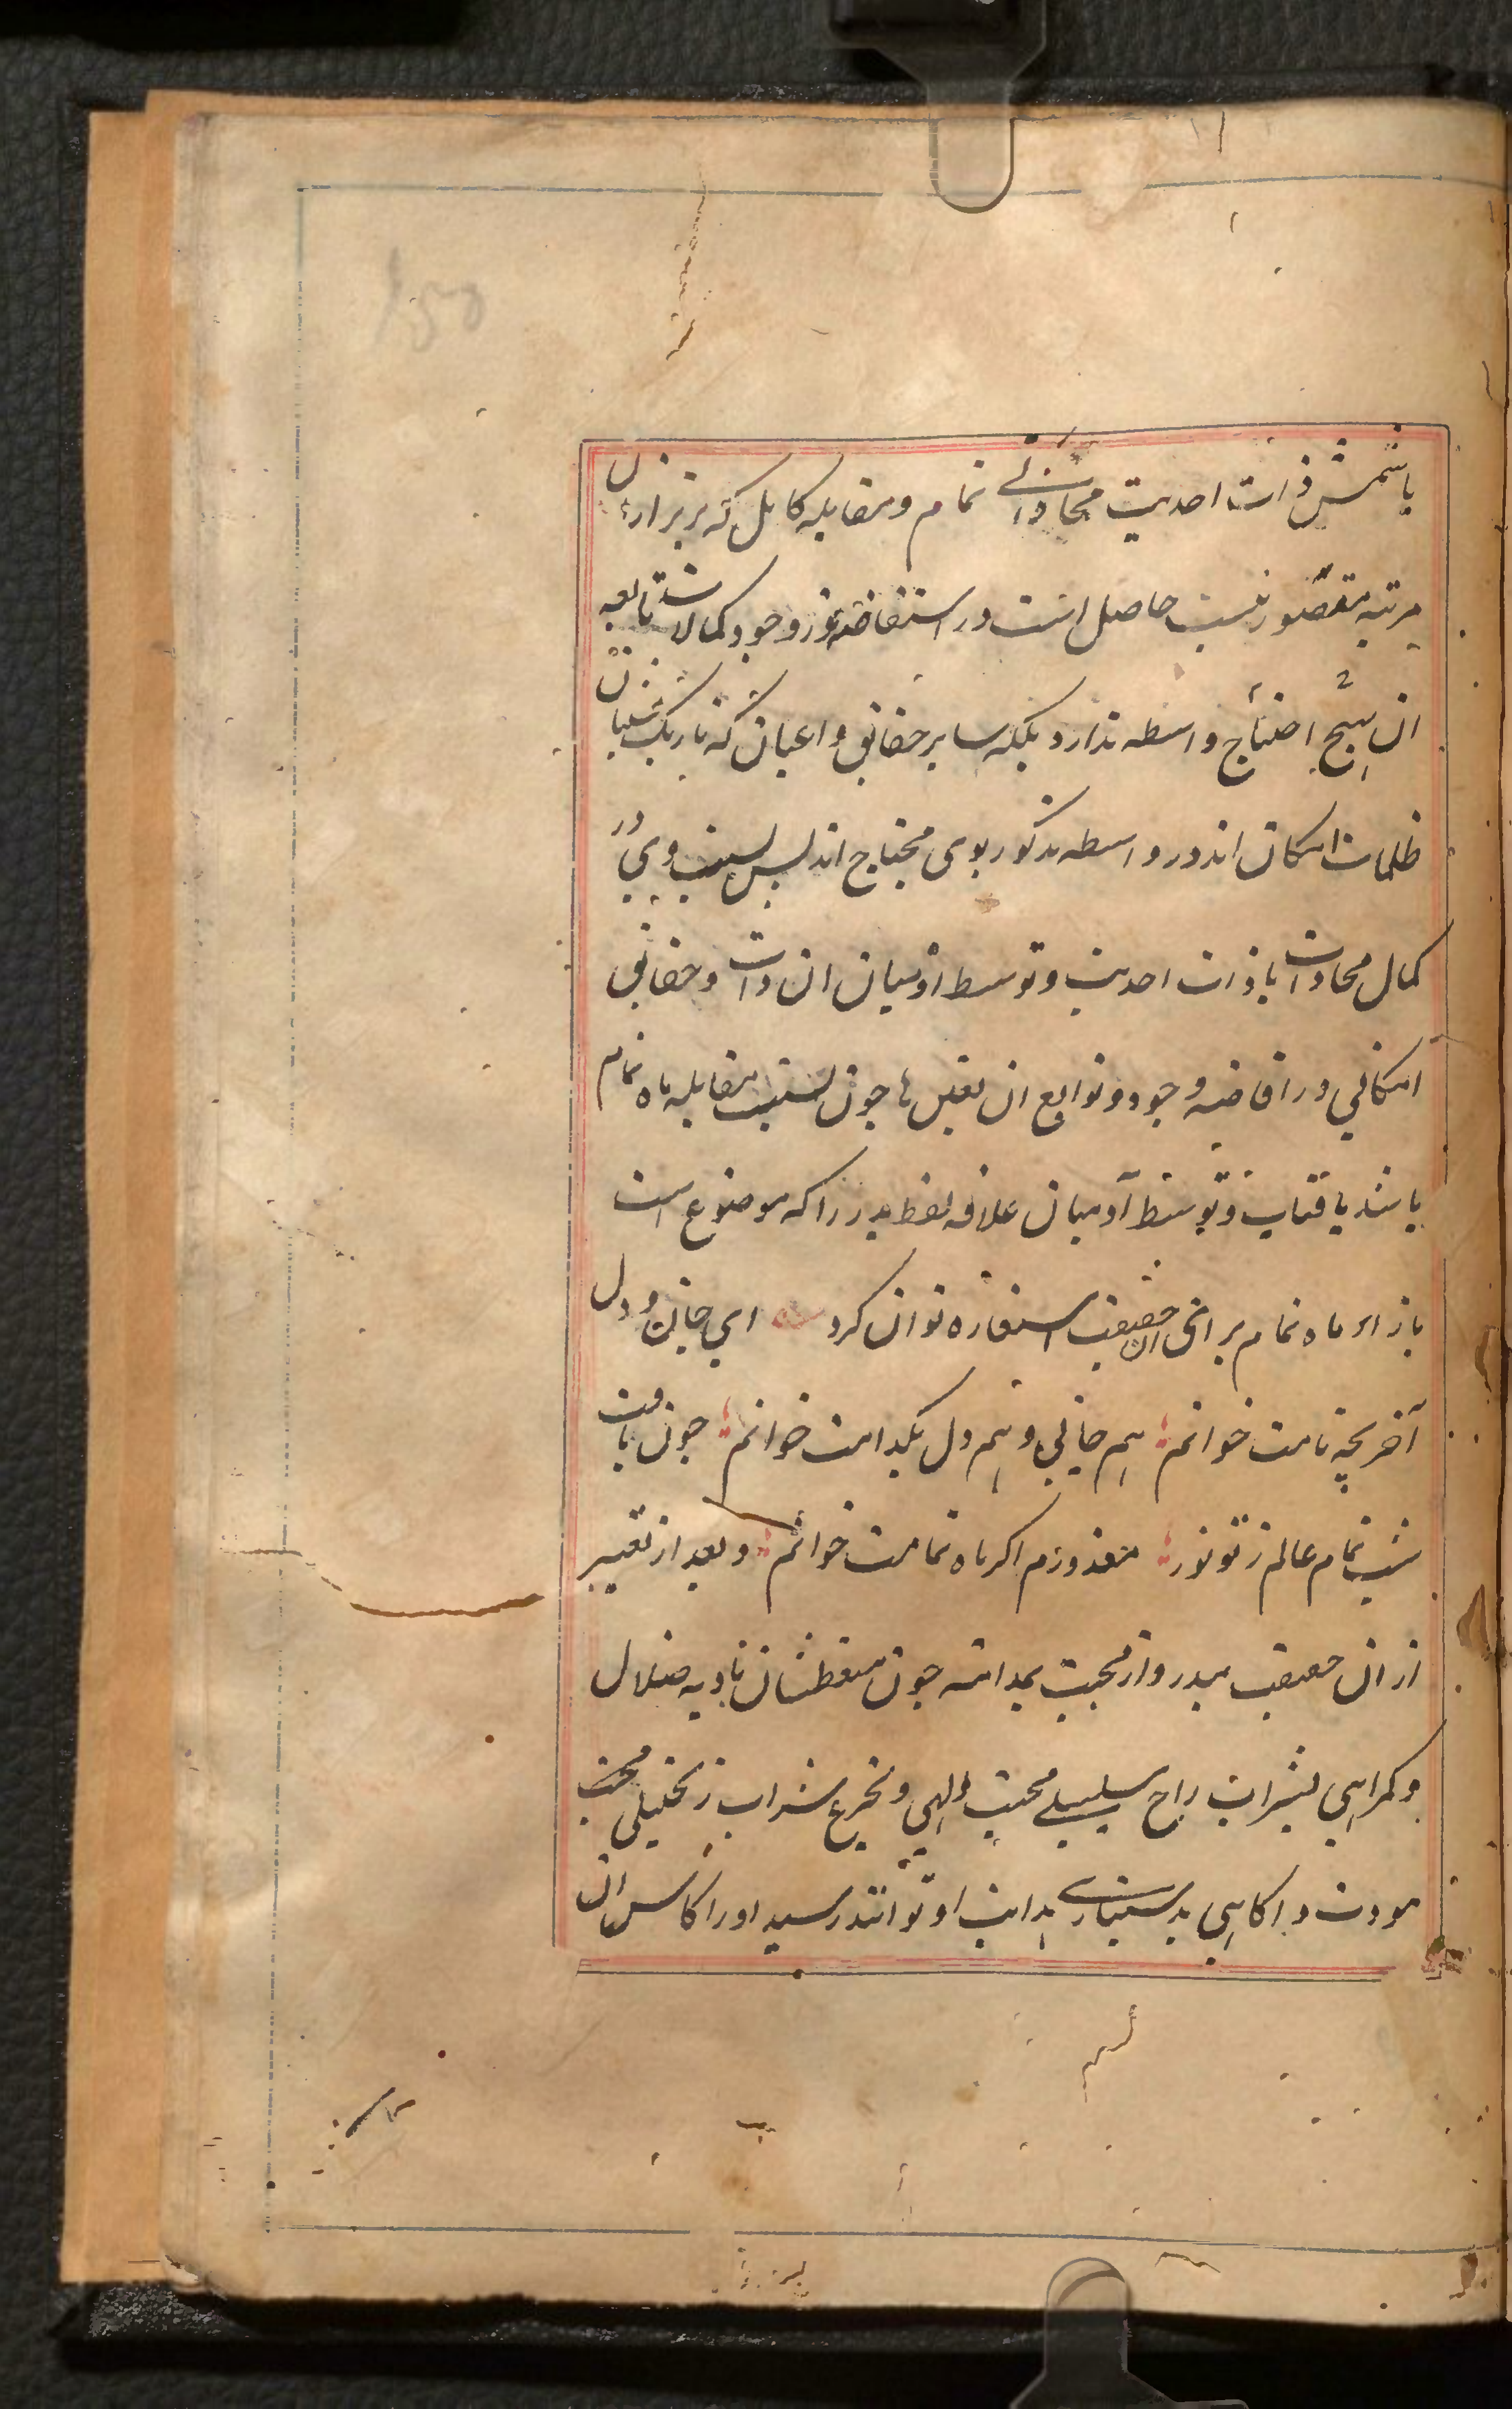 با شمس ذات احدیت محاذاتی تمام و مقابله کامل که برتر ازان
مرتبه متصور نیست حاصل است و در استفاضه نور وجود کمالات تابعه
ان هیچ احتیاج واسطه ندارد بلکه سایر حقایق و اعیان که تاریک نشینان
ظلمات امکان اند در واسطه مذکور بوی محتاج اند پس نسبت وی در
کمال محاذات با ذات احدیت و توسط او میان ان ذات و حقایق
امکانی در افاضه وجود و توابع ان بعینها چون نسبت مقابله ماه تمام
باشد بافتاب و توسط او میان علاقه لفظ بدر را که موضوع است
بازای ماه تمام برای ان حقیقت استعاره توان کرد ای جان و دل
آخر بچه نامت خوانم هم جانی و هم دل بکدامت خوانم چون یافت
شب تمام عالم ز تو نور معذورم اگر ماه تمامت خوانم و بعد از تعبیر
از ان حقیقت ببدر و از محبت بمدامه چون متعطشان بادیه ضلال
و گمراهی بشراب راح سلسبیلی محبت الهی و تجرع شراب زنجبیلی محبت
مودت و اکاهی بدستیاری هدایت او توانند رسید او را کاس ان